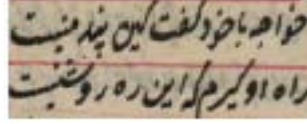 خواجه با خود گفت کین پند منست
راه او گیرم که این ره روشنست